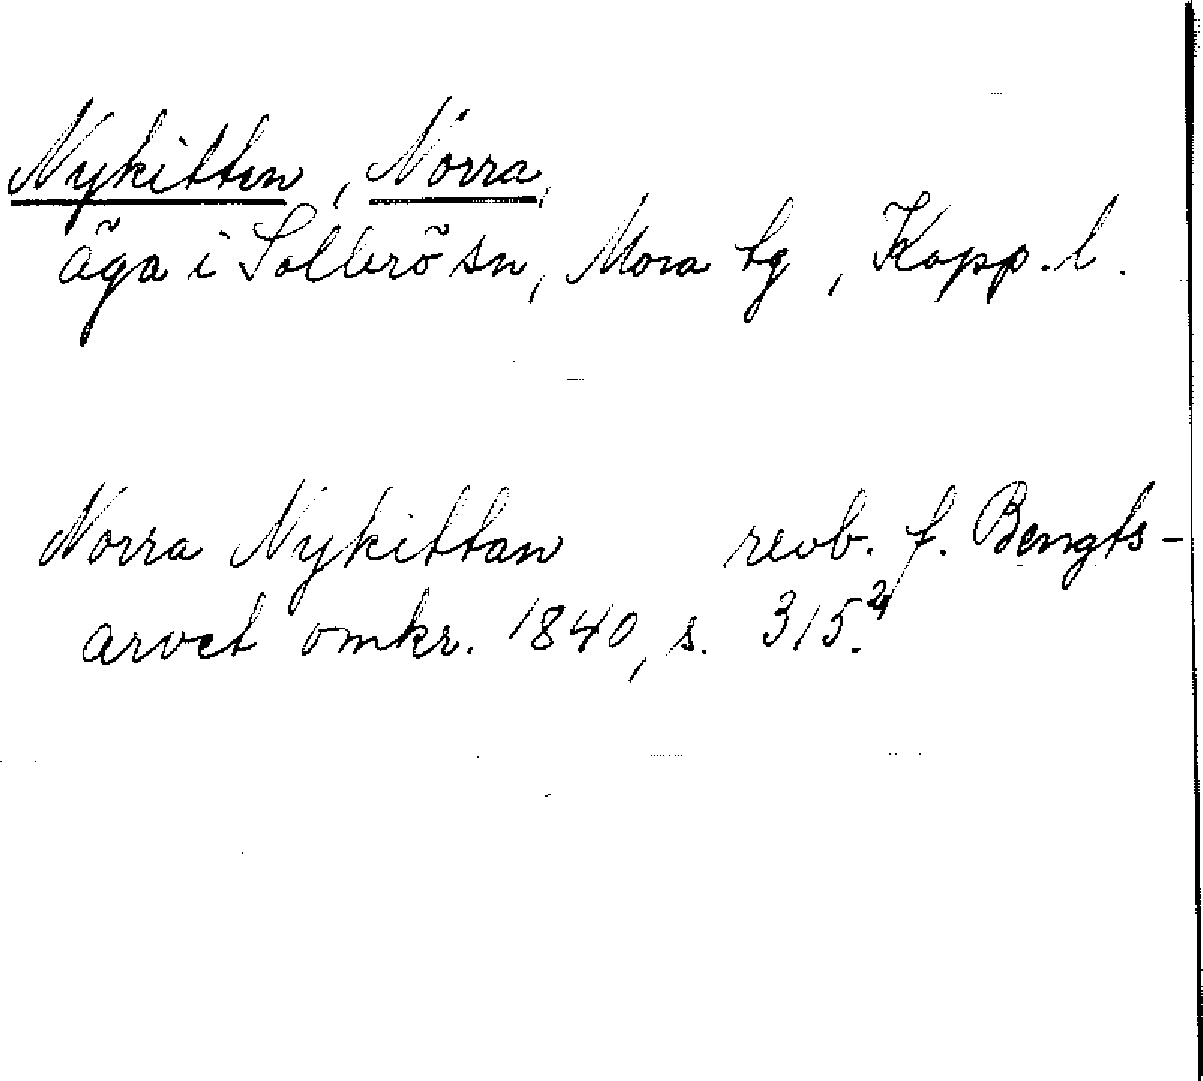 Nykitten, Norra,
äga i Sollerö sn, Mora tg, Kopp. l.
Norra Nykittan revb. f. Bengts-
arvet omkr. 1840, s. 315².